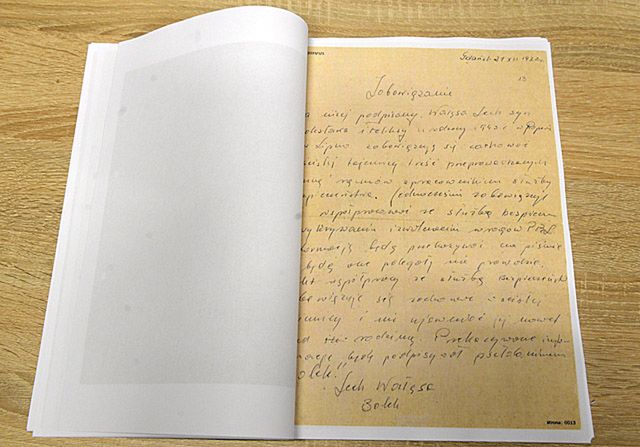 Gdańsk 21 XII
13
Zobowiązanie
niżej podpisany Wałęsa Lech syn
olesława i Feliksy urodzony 1943 w
Lipno zobowiązuję się zachować
ścisłej tajemnicy treść przeprowadzonych
rozmów z pracownikiem służby
Jednocześnie zobowiązuję
współpracować ze służbą bezpieczeń
wykrywaniu i zwalczaniu wrogów PRL
formacje będę przekazywać na piśmie
będą one polegały na prawdzie.
kt współpracy ze służbą Bezpieczeńst
bowiązuję się zachować w ścisłej
jemnicy i nie ujawniać jej nawet
rodziną. Przekazywane infor
macje będę podpisywał pseudonimem
olek"
Lech Wałęsa
Bolek
0013